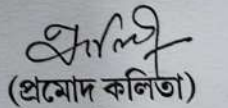 (প্ৰমোদ কলিতা)